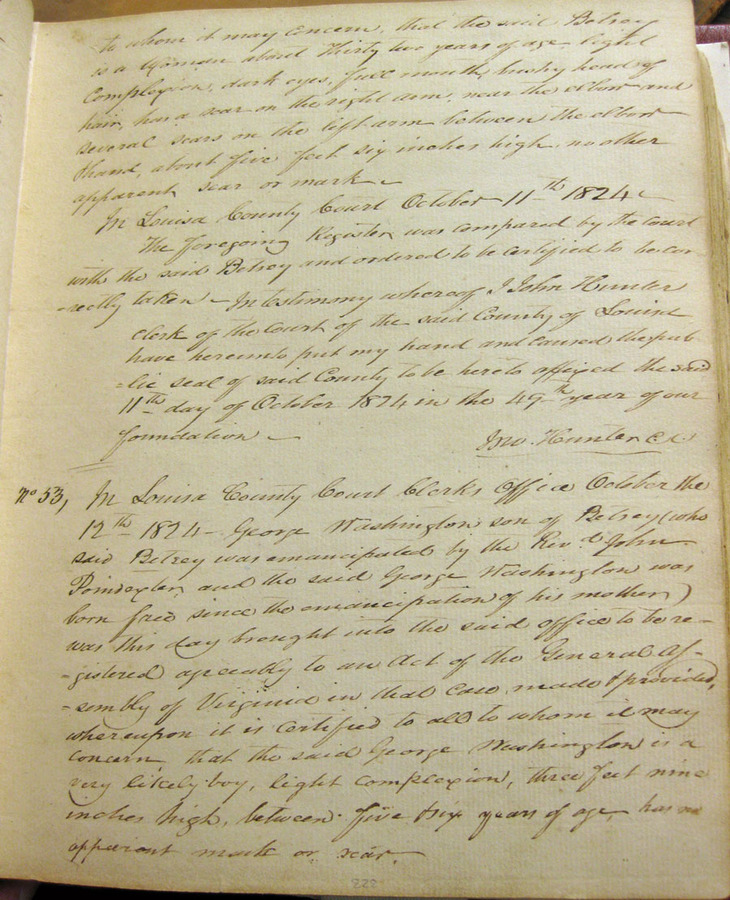 to whom it may concern, that the said Betsey
is a Woman about Thirty two years of age light
Complexion, dark eyes, full mouth, bushy head of
hair, has a scar on the right arm, near the elbow and
several scars on the left arm between the elbow
&hand, about five feet six inches high, no other
apparent scar or mark
In Louisa County Court October 11th 1824
The foregoing Register was compared by the court
with the said Betsey and ordered to be certified to be cor-
-rectly taken - In testimony whereof I John Hunter
clerk of the Court of the said County of Louisa
have hereunto put my hand and caused the pub-
-lic seal of said County to be hereto affixed the said
11th day of October 1824 in the 49th year of our
foundation
Jno. Hunter CC
No 53, In Louisa County Court Clerks Office October the
12th 1824 - George Washington son of Betsey (who
said Betsey was emancipated by the Revd. John
Poindexter and the said George Washington was
born free since the emancipation of his mother)
was this day brought into the said office to be re-
-gistered agreeably to an Act of the General As-
-sembly of Virginia in that case made & provided,
whereupon it is Certified to all to whom it may
concern, that the said George Washington is a
very likely boy, light complexion, three feet nine
inches high, between five & six years of age, has no
apparent mark or scar.